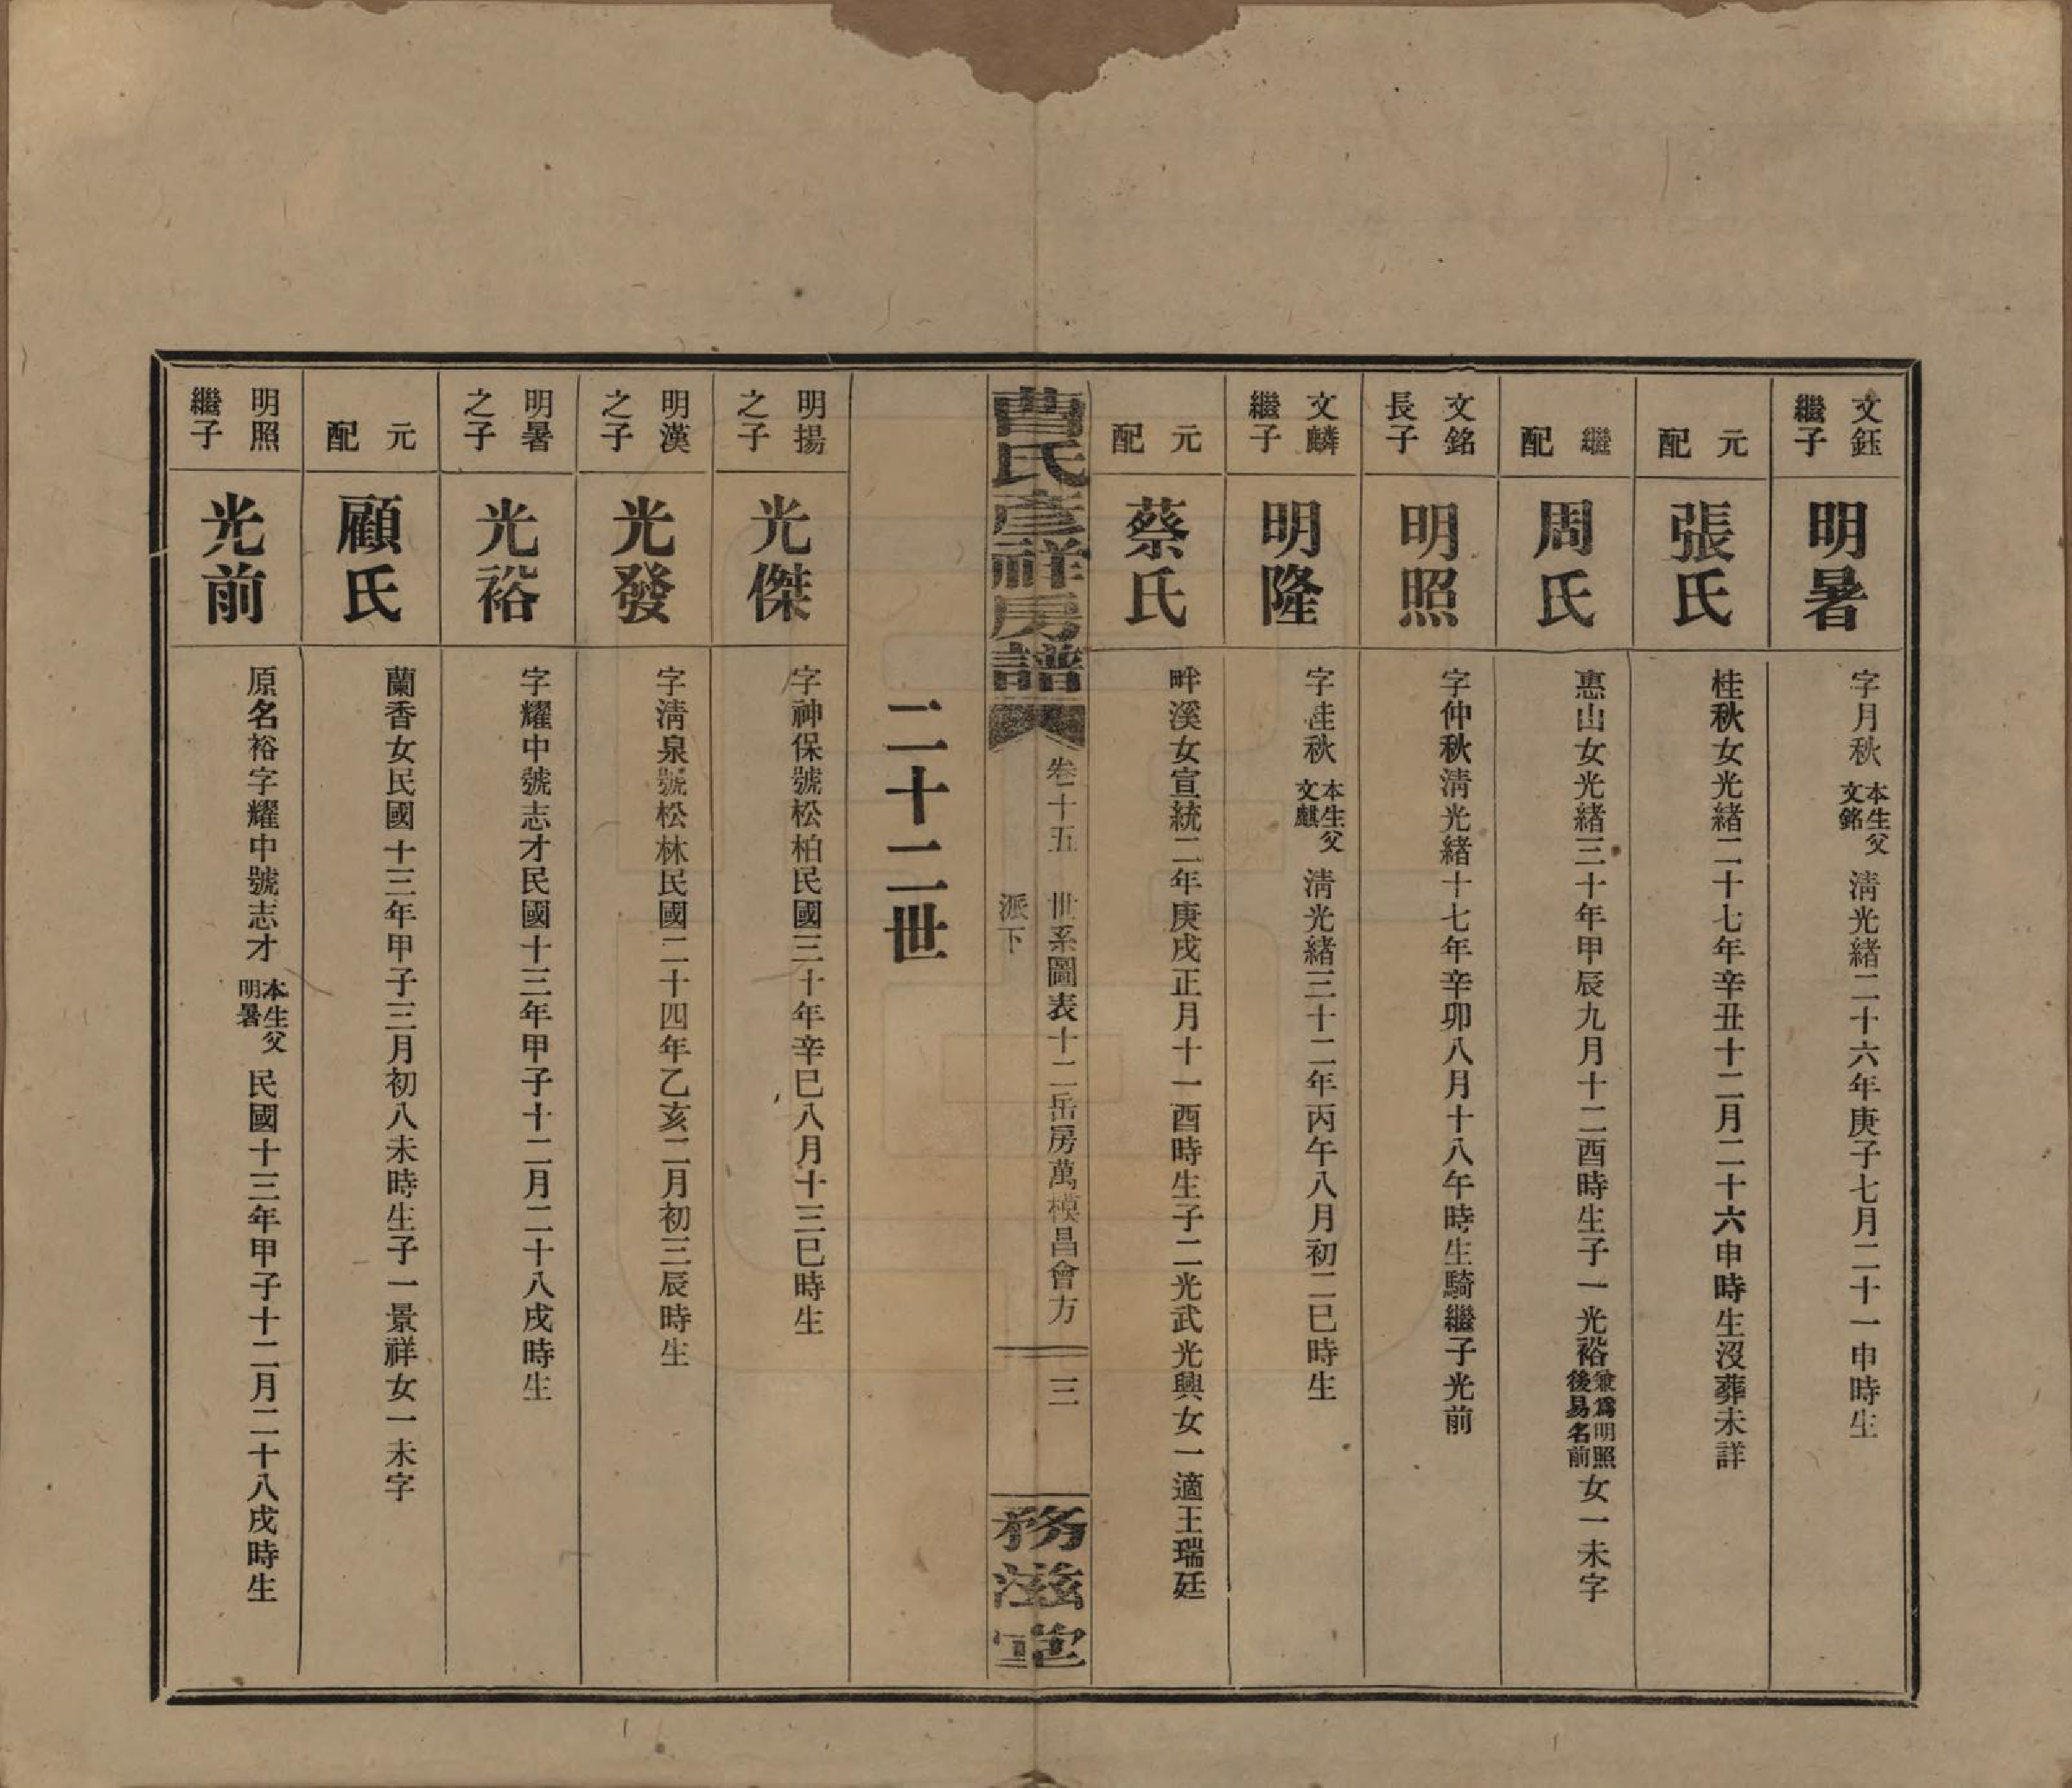 文鈺繼子
明暑
字月秋本生父文銘清光緒二十六年庚子七月二十一申時生
元配
張氏
桂秋女光緒二十七年辛丑十二月二十六申時生沒葬未詳
繼配
周氏
惠山女光緒三十年甲辰九月十二酉時生子一光裕兼爲明照後易名前女一未字
文銘長子
明照
字仲秋清光緒十七年辛卯八月十八午時生騎繼子光前
文麟繼子
明隆
字桂秋本生父文麒清光緒三十二年丙午八月初二巳時生
元配
蔡氏
畔溪女宣統二年庚戌正月十一酉時生子二光武光興女一適王瑞廷
曹氏彥祥房譜
卷十五
世系圖表十二岳房萬模昌會方派下
三
務滋堂
二十二世
明揚之子
光傑
字神保號松柏民國三十年辛巳八月十三巳時生
明漢之子
光發
字清泉號松林民國二十四年乙亥二月初三辰時生
明暑之子
光裕
字耀中號志才民國十三年甲子十二月二十八戌時生
元配
顧氏
蘭香女民國十三年甲子三月初八未時生子一景祥女一未字
明照繼子
光前
原名裕字耀中號志才本生父明暑民國十三年甲子十二月二十八戌時生